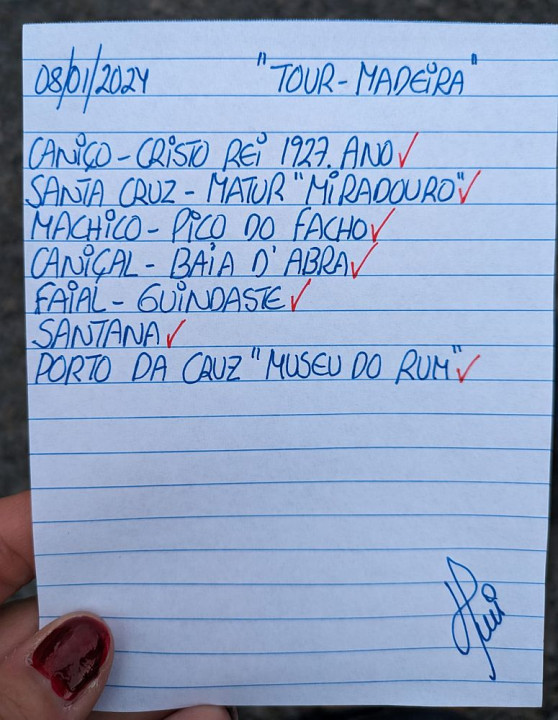 08/01/2024 "TOUR-MADEiRA"
CANiÇO - CRiSTO REi 1927. ANO✓
SANTA CRUZ - MATUR "MiRADOURO"✓
MACHiCO - PiCO DO FACHO✓
CANiÇAL - BAiA D'ABRA✓
FAiAL - GUiNDASTE✓
SANTANA✓
PORTO DA CRUZ "MUSEU DO RUM"✓